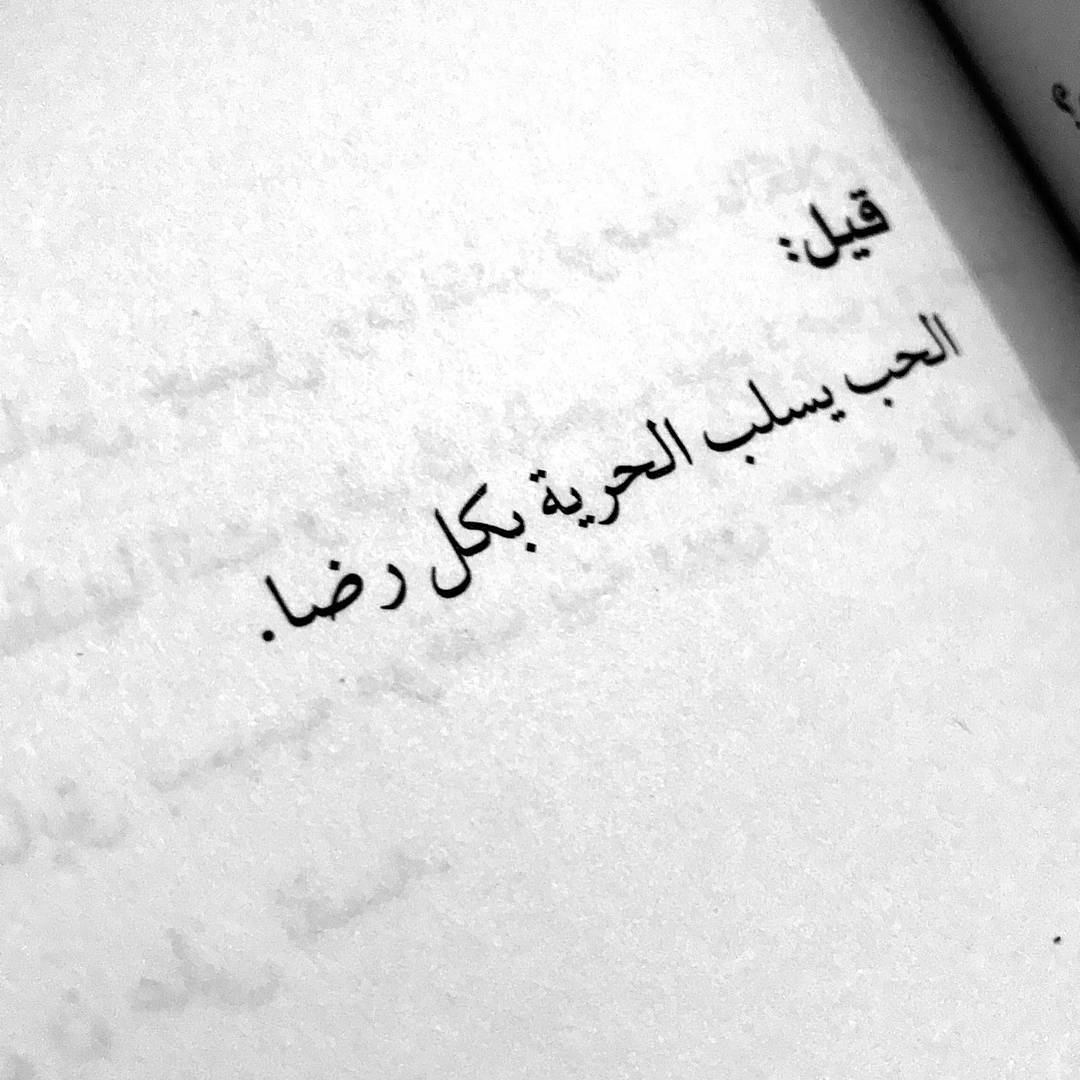 قيل:
الحب يسلب الحرية بكل رضا.